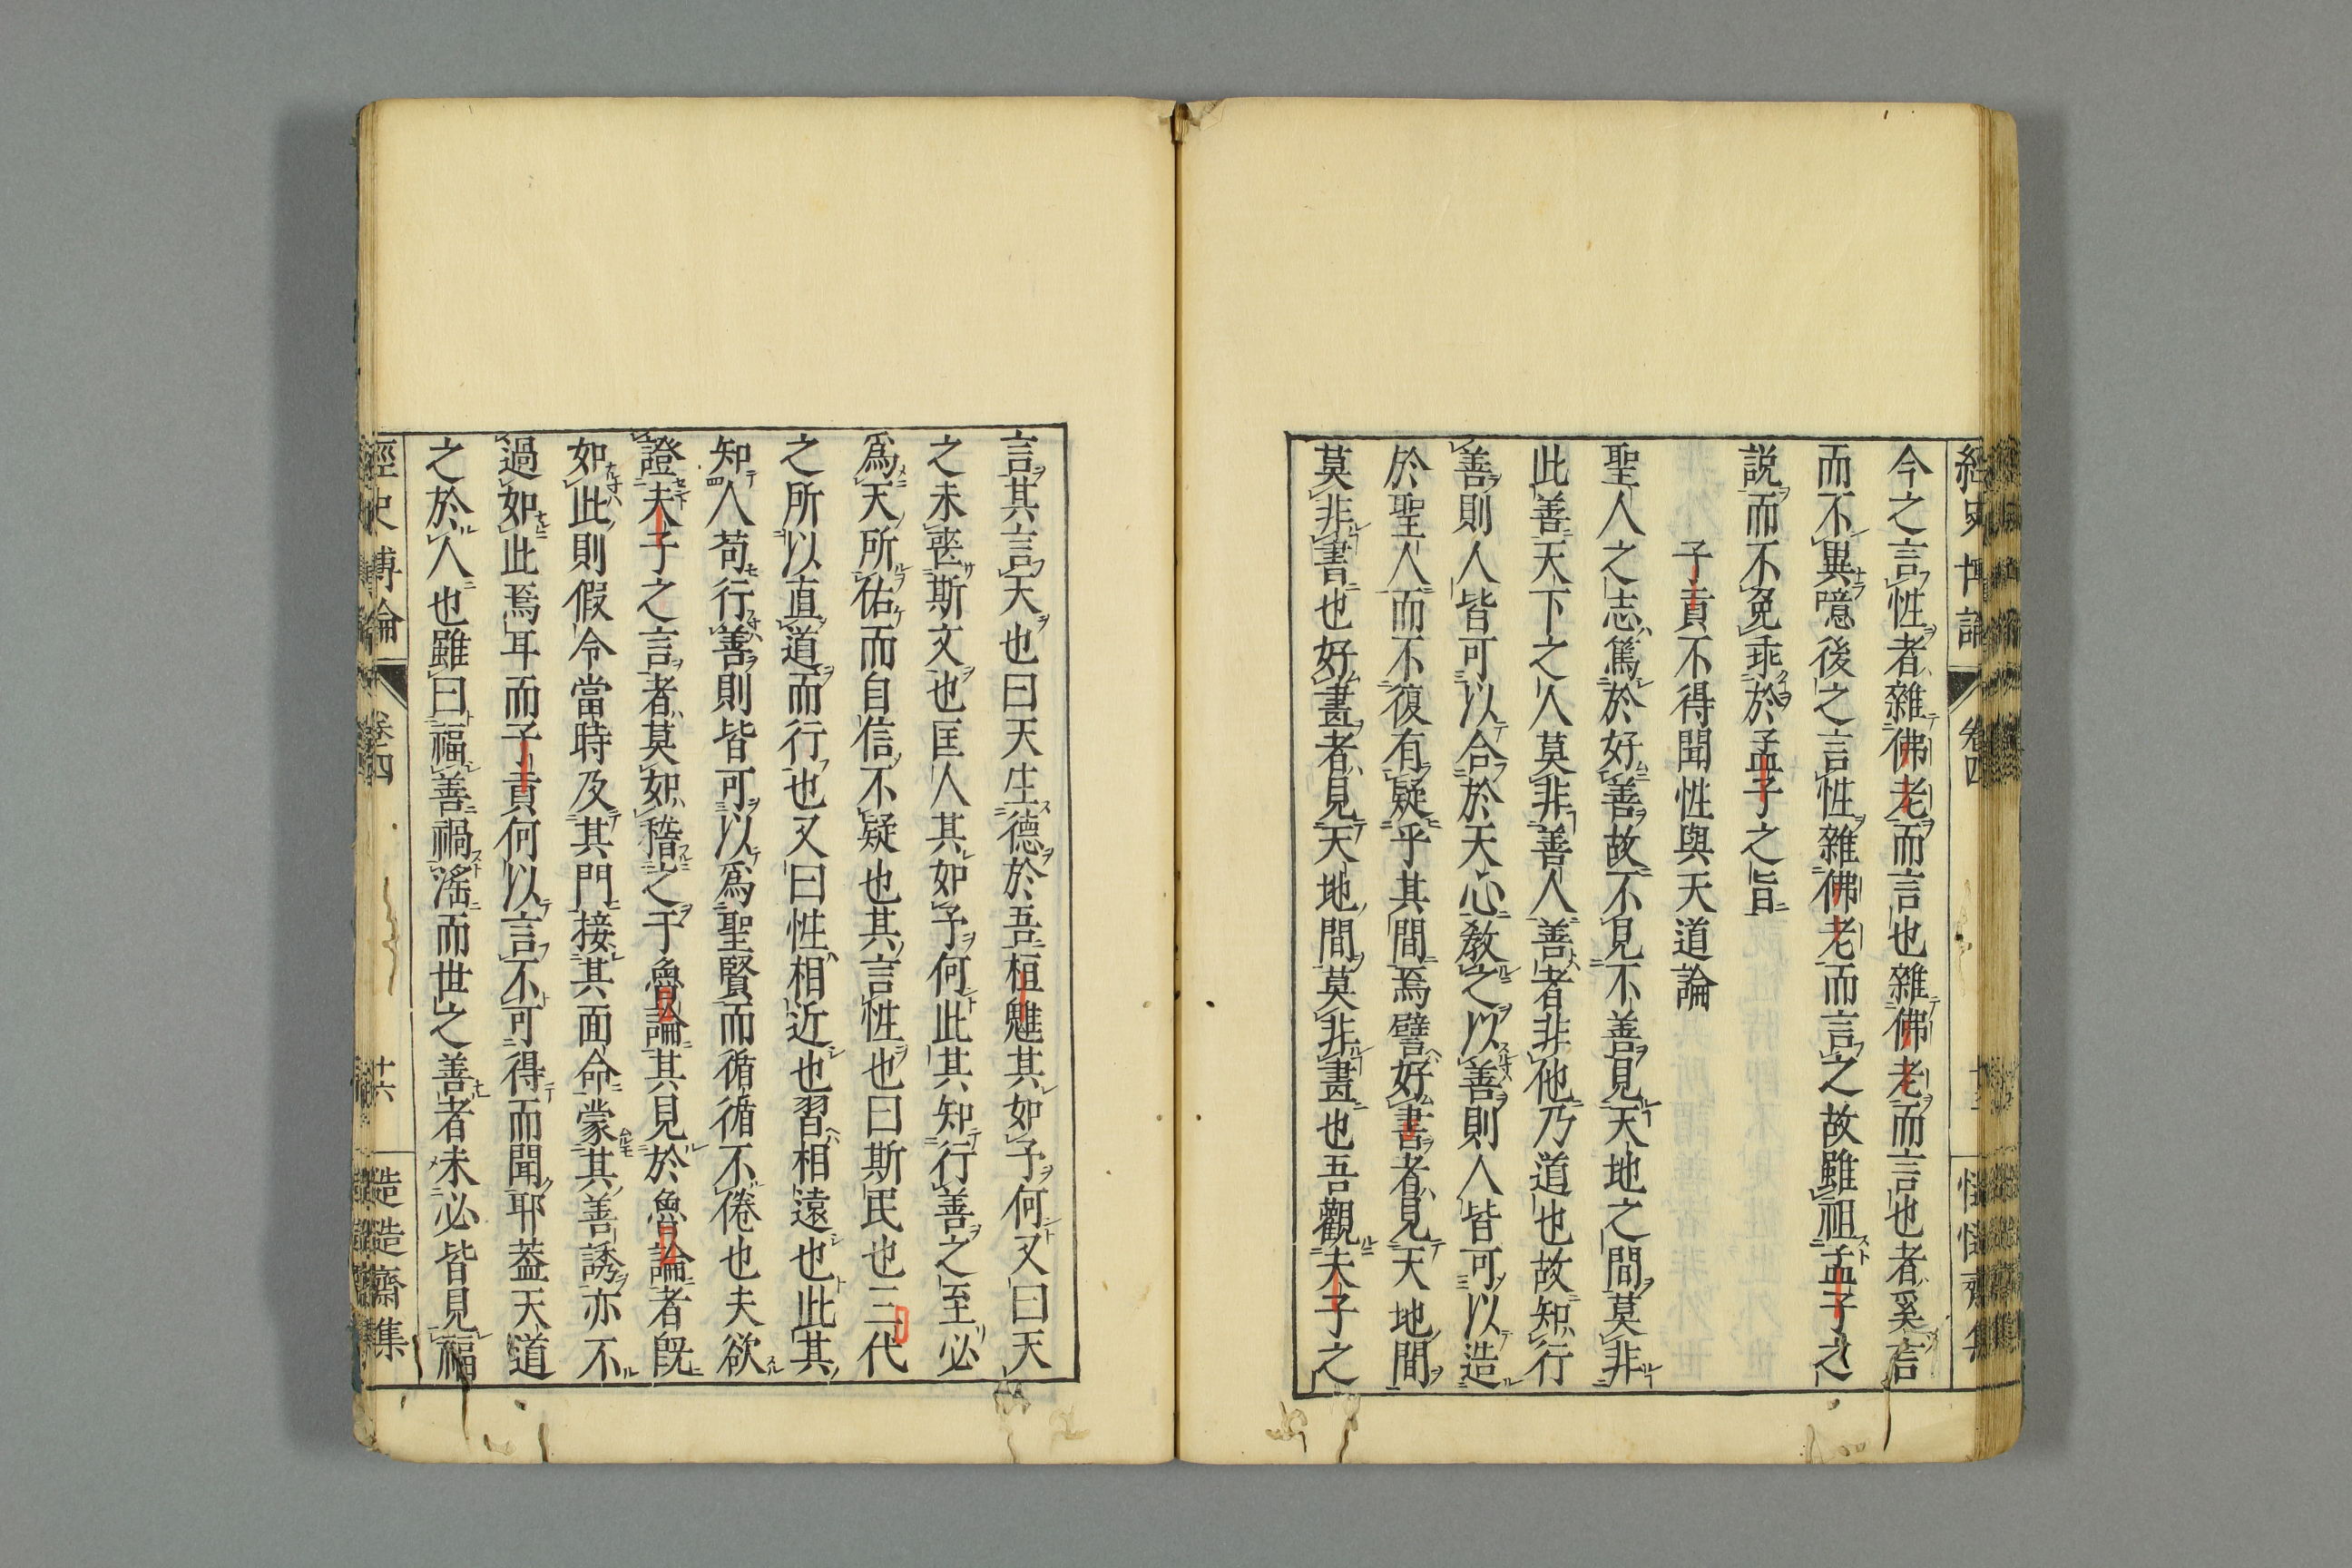 今之言性者雜佛老而言也雜佛老而言也者奚言
而不異噫後之言性雜佛老而言之故雖祖孟子之
説而不免乖於孟子之旨
子貢不得聞性與天道論
聖人之志篤於好善故不見不善見天地之間莫非
此善天下之人莫非善人善者非他乃道也故知行
善則人皆可以合於天心教之以善則人皆可以造
於聖人而不復有疑乎其間焉譬好書者見天地間
莫非書也好畫者見天地間莫非畫也吾觀夫子之
言其言天也曰天生德於吾桓魋其如予何又曰天
之未喪斯文也匡人其如予何此其知行善之至必
爲天所佑而自信不疑也其言性也曰斯民也三代
之所以直道而行也又曰性相近也習相遠也此其
知人苟行善則皆可以爲聖賢而循循不倦也夫欲
證夫子之言者莫如稽之于魯論其見於魯論者既
如此則假令當時及其門接其面命蒙其善誘亦不
過如此焉耳而子貢何以言不可得而聞耶蓋天道
之於人也雖曰福善禍淫而世之善者未必皆見福
經史博論 卷四 十六 慥慥齋集